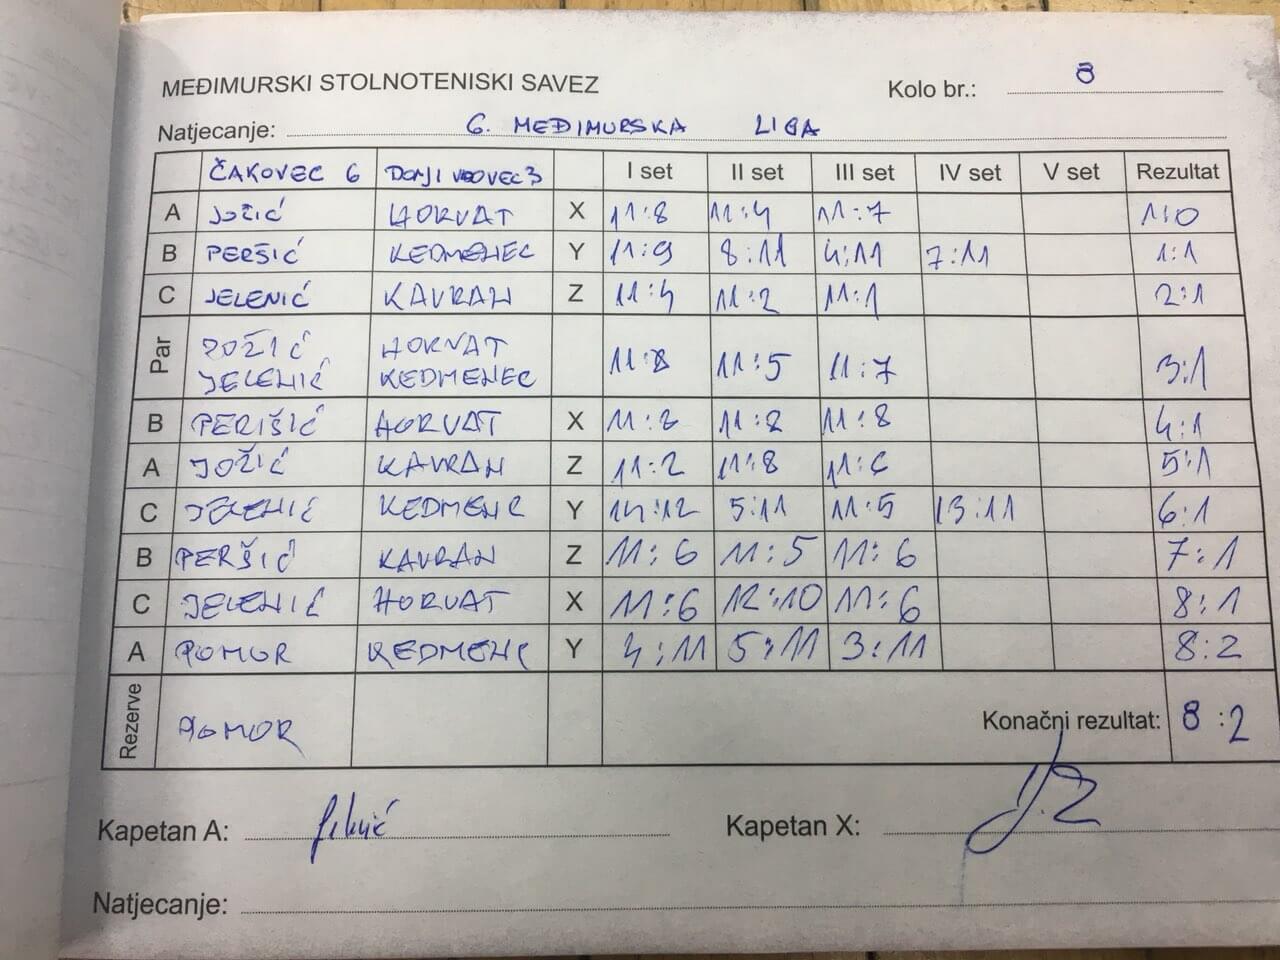 MEĐIMURSKI STOLNOTENISKI SAVEZ
Kolo br.: 8
Natjecanje: 6. MEĐIMURSKA LIGA
ČAKOVEC 6 DONJI VIDOVEC 3 I set II set III set IV set V set Rezultat
A JOŽIĆ HORVAT X 11:8 11:4 11:7 1:0
B PERŠIĆ KEDMENEC Y 11:9 8:11 4:11 7:11 1:1
C JELENIĆ KAVRAN Z 11:4 11:2 11:1 2:1
Par JOŽIĆ HORVAT
JELENIĆ KEDMENEC 11:8 11:5 11:7 3:1
B PERIŠIĆ HORVAT X 11:8 11:8 11:8 4:1
A JOŽIĆ KAVRAN Z 11:2 11:8 11:6 5:1
C JELENIĆ KEDMENC Y 14:12 5:11 11:5 13:11 6:1
B PERŠIĆ KAVRAN Z 11:6 11:5 11:6 7:1
C JELENIĆ HORVAT X 11:6 12:10 11:6 8:1
A POMOR KEDMENC Y 4:11 5:11 3:11 8:2
Rezerve POMOR Konačni rezultat: 8:2
Kapetan A: Jelenić Kapetan X:
Natjecanje: